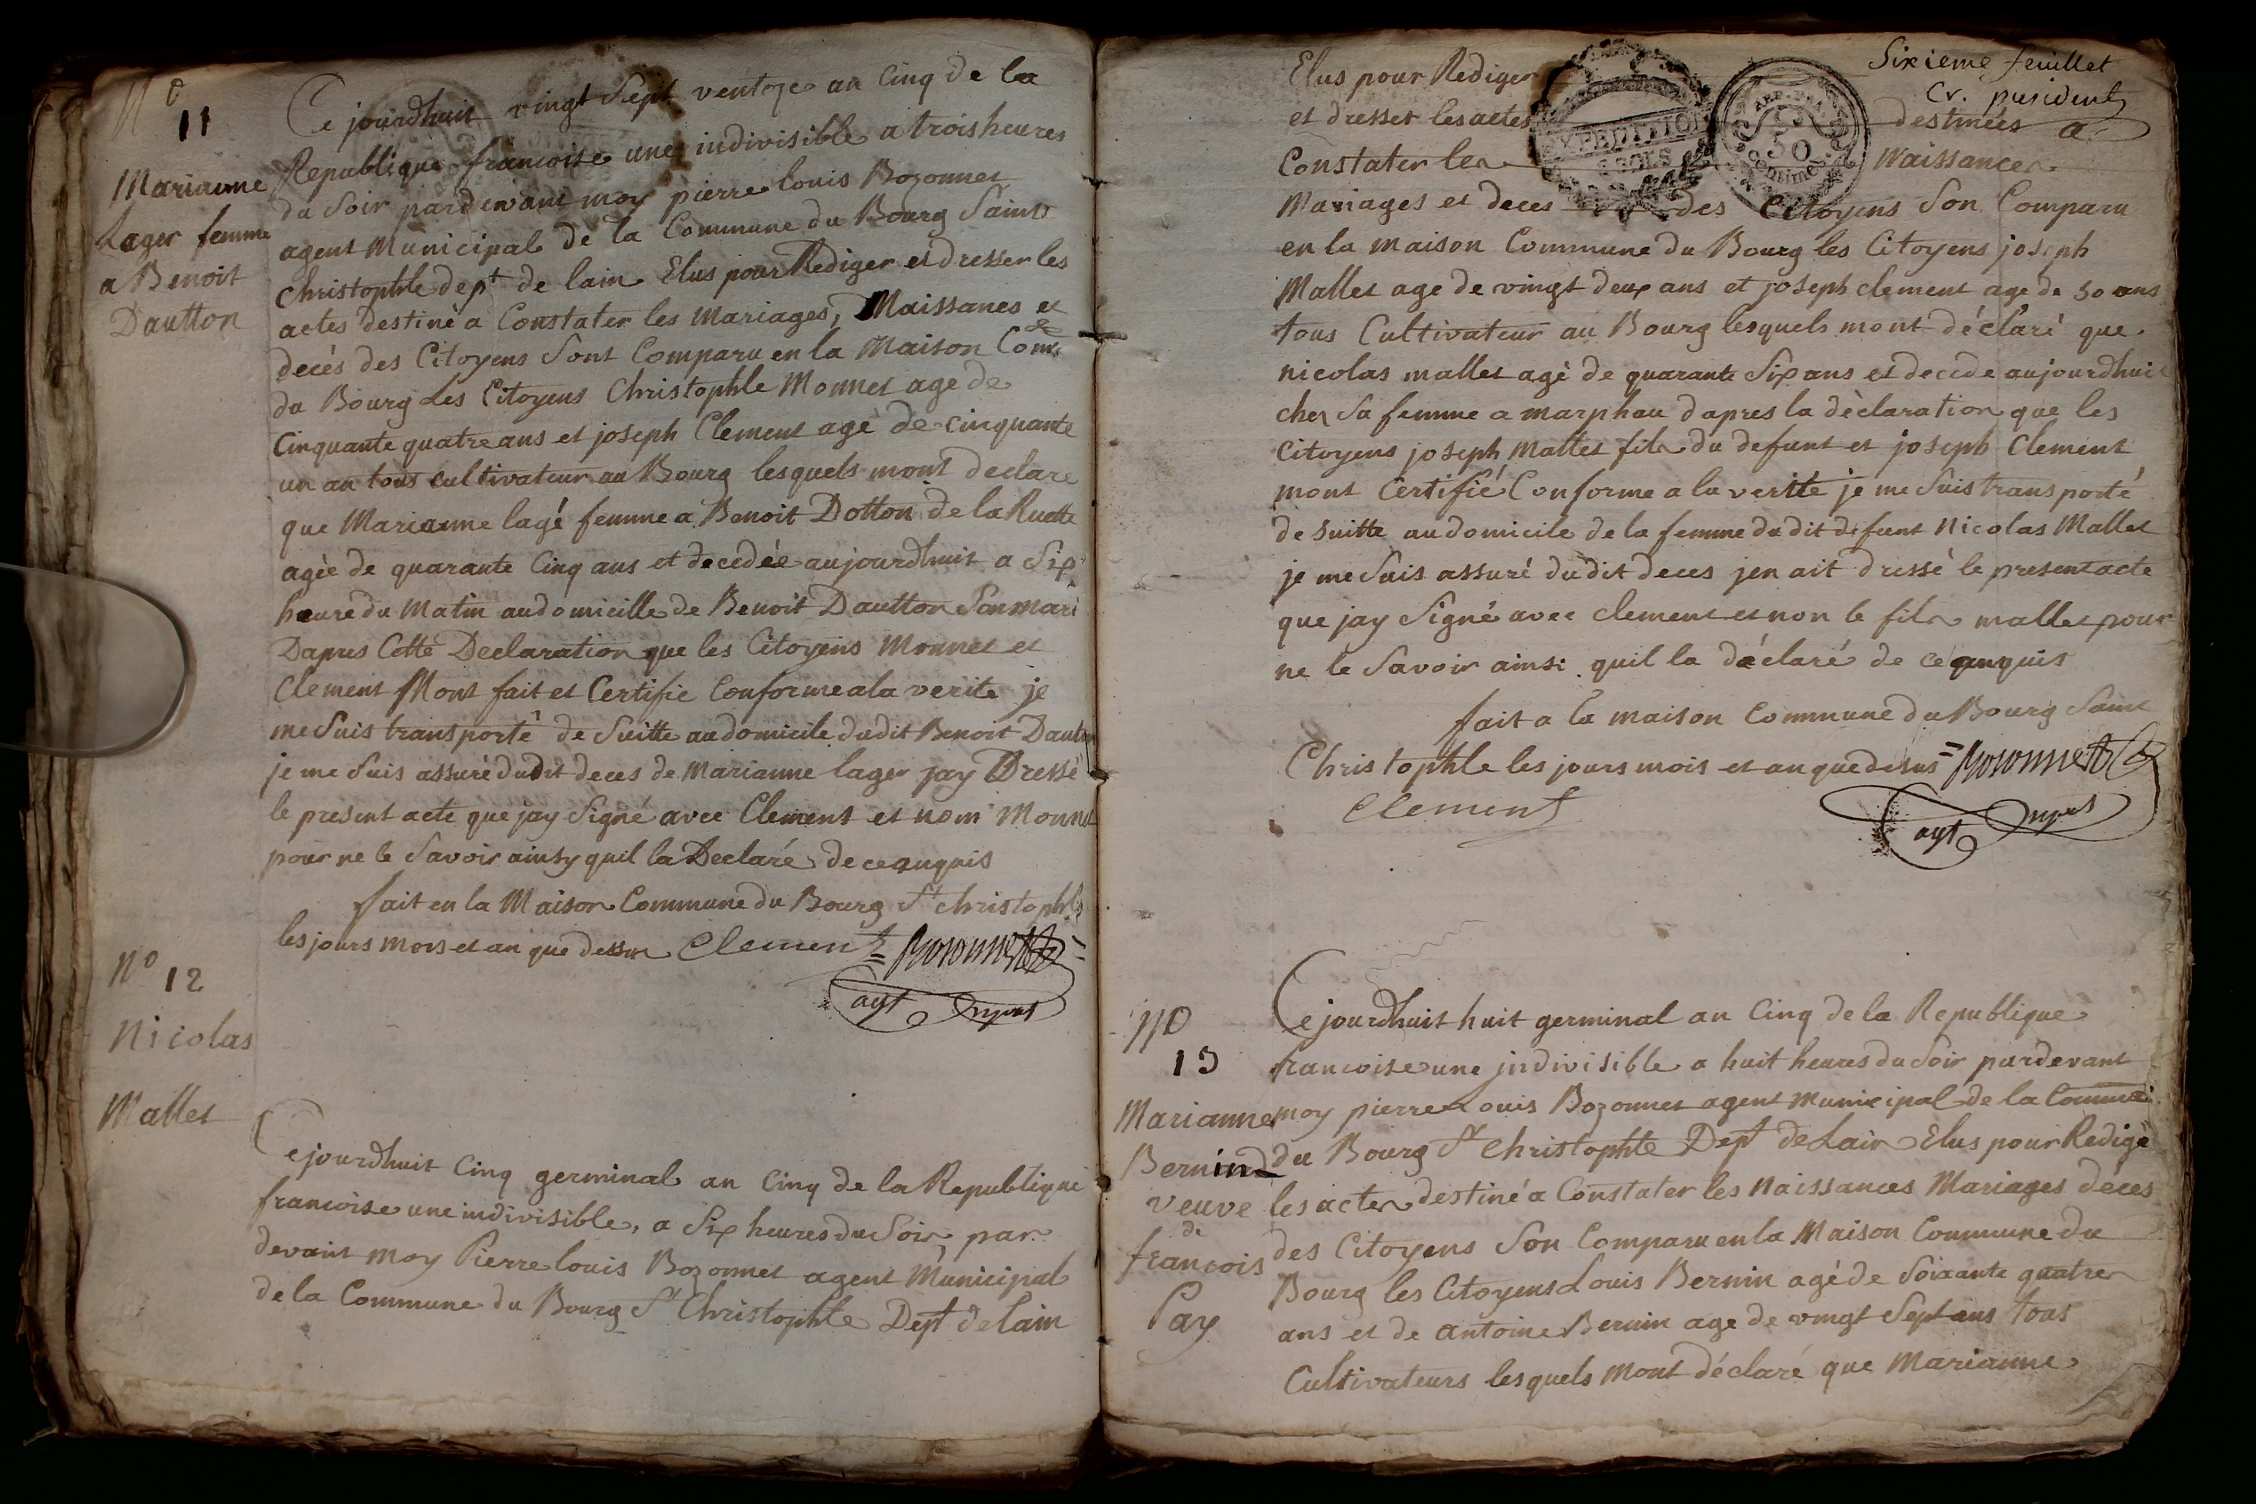 No
11
Marianne
Lager femme
a Benoit
Dautton
Ce jourdhuit vingt Sept ventoze an Cinq de la
Republique francoise une indivisible a trois heures
du Soir pardevant moy pierre louis Bozonnet
agent Municipal de la Commune du Bourg Saint
Christophle dept de lain Elus pour Rediger et dresser les
actes destiné a Constater les Mariages, Naissances et
decès des Citoyens Sont Comparu en la Maison Come
du Bourg Les Citoyens Christophle Monnet age de
Cinquante quatre ans et joseph Clement agé de cinquante
un an tous cultivateur au Bourg lesquels mont declare
que Marianne lagé femme a Benoit Dotton de la Ruette
agèe de quarante Cinq ans et decedèe aujourdhuit a Six
heure du Matin au domicille de Benoit Dautton Son mari
Dapres Cette Declaration que les Citoyens Monnet et
Clement Mont fait et Certifie Conforme a la verite je
me Suis transporté de Suitte au domicile dudit Benoit Dautton
je me Suis assuré dudit deces de Marianne lager jay Dressé
le present acte que jay Signé avec Clement et nom Monnet
pour ne le Savoir ainsy quil la Declaré de ce anquis
fait en la Maison Commune du Bourg St christophle
les jours mois et an que dessu Clement = Bozonnet
agt
No 12
Nicolas
Mallet
Cejourdhuit Cinq germinal an Cinq de la Republique
francoise une indivisible, a Six heures du Soir par
devant moy Pierre louis Bozonnet agent Municipal
de la Commune du Bourg St Christophle Dept de lain
Sixieme feuillet
Cr. president
Elus pour Rediger
et dresser les actes destinées a
EXPEDITION
REP. FRA.
50
CENTIMES
Constater les Naissances
Mariages et deces des Citoyens Son Comparu
en la maison Commune du Bourg les Citoyens joseph
Mallet age de vingt deux ans et joseph clement age de 50 ans
tous Cultivateur au Bourg lesquels mont déclaré que
nicolas mallet agè de quarante Six ans et decede aujourdhuit
chez Sa femme a marphau dapres la dèclaration que les
Citoyens joseph Mallet fils du defunt et joseph Clement
mont Certifié Conforme a la verite je me Suis transporté
de Suitte au domicile de la femme dudit defunt Nicolas Mallet
je me Suis assuré dudit deces jen ait dressé le present acte
que jay Signé avec clement et non le fils mallet pour
ne le Savoir ainsi quil la déclaré de ce anquis
fait a la maison Commune du Bourg Saint
Christophle les jours mois et an que desus = Bozonnet
Clement
agt
No
13
Marianne
Bernin
veuve
de
francois
Pay
Cejourdhuit huit germinal an Cinq de la Republique
francoise une indivisible a huit heures du Soir pardevant
moy pierre Louis Bozonnet agent municipal de la Commune
du Bourg St christophle Dept de Lain Elus pour Redige
les actes destiné a Constater les Naissances Mariages deces
des Citoyens Son Comparu en la Maison Commune du
Bourg les Citoyens Louis Bernin agé de Soixante quatre
ans et de antoine Bernin age de vingt Sept ans tous
Cultivateurs lesquels Mont déclaré que Marianne